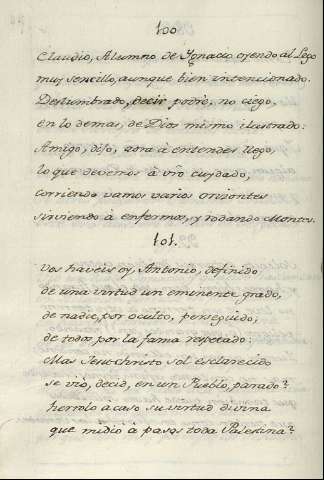 100
Claudio, Alumno de Ygnacio oyendo al Lego
muy sencillo, aunque bien intencionado.
Deslumbrado, decir podrè, no ciego,
en lo demas, de Dios mismo ilustrado:
Amigo, dijo, aora à entender llego,
lo que devemos à vro cuydado,
corriendo vamos varios orizontes
sirviendo à enfermos, y rodando Montes.
101.
Vos haveis oy, Antonio, definido
de una virtud un eminente grado,
de nadie, por oculto, perseguido,
de todos, por la fama respetado:
Mas Jesu-christo sol esclarecido
se viò, decid, en un Pueblo, parado?
herrolo à caso su virtud divina
que midiò à pasos toda Palestina?